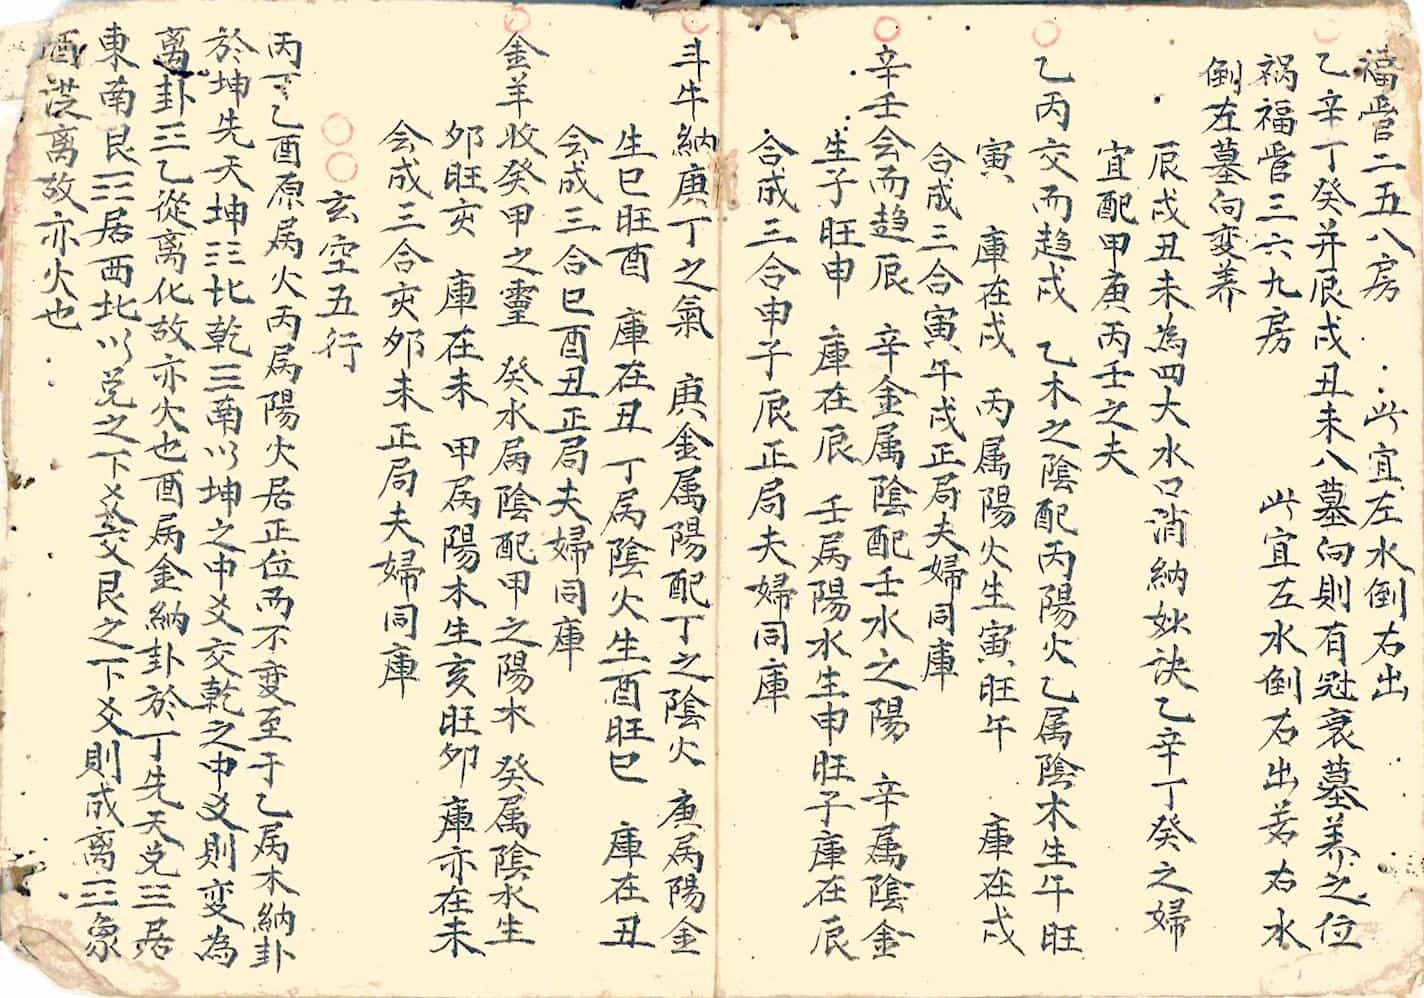 福啻二五八房 此宜左水倒右出
乙辛丁癸并辰戌丑未八墓向則有冠衰墓养之位
祸福啻三六九房 此宜左水倒右出若右水
倒左墓向变养
辰戌丑未為四大水口消納妙诀乙辛丁癸之婦
宜配甲庚丙壬之夫
乙丙交而趋戌 乙木之陰配丙陽火乙属陰木生午旺
寅 庫在戌 丙属陽火生寅旺午 庫在戌
合成三合寅午戌正局夫婦同庫
辛壬会而趋辰 辛金属陰配壬水之陽 辛属陰金
生子旺申 庫在辰 壬属陽水生申旺子庫在辰
合成三合申子辰正局夫婦同庫
斗牛納庚丁之氣 庚金属陽配丁之陰火 庚属陽金
生巳旺酉 庫在丑 丁属陰火生酉旺巳 庫在丑
会成三合巳酉丑正局夫婦同庫
金羊收癸甲之靈 癸水属陰配甲之陽木 癸属陰水生
夘旺亥 庫在未 甲属陽木生亥旺夘 庫亦在未
会成三合亥夘未正局夫婦同庫
玄空五行
丙丁乙酉原属火丙属陽火居正位而不变至于乙属木納卦
於坤先天坤☷北乾☰南以坤之中爻交乾之中爻則变為
离卦☲乙從离化故亦火也酉属金納卦於丁先天兑☱居
東南艮☶居西北以兑之下爻交艮之下爻則成离☲象
酉従离故亦火也